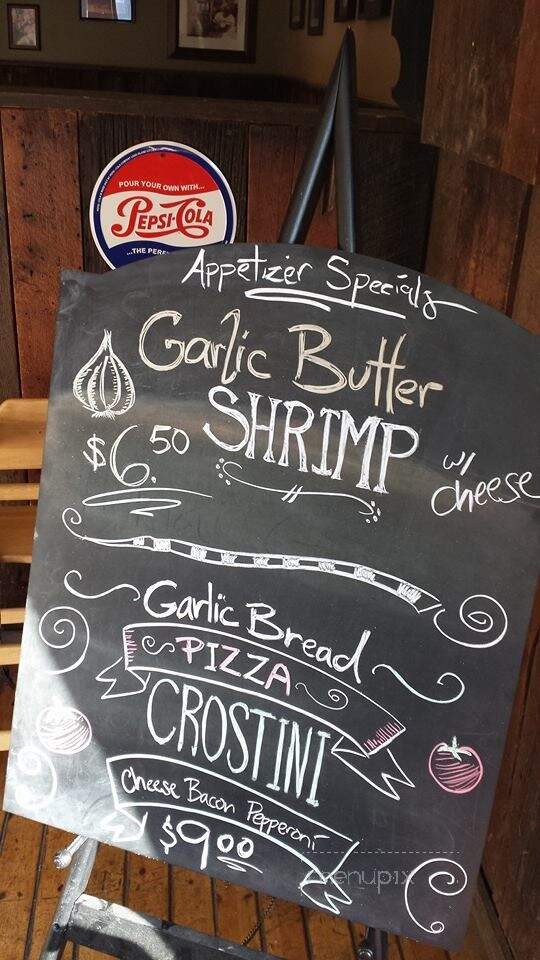 POUR YOUR OWN WITH...
PEPSI-COLA
Appetizer Specials
Garlic Butter
SHRIMP
$6.50
w/ cheese
Garlic Bread
PIZZA
CROSTINI
Cheese Bacon Pepperoni
$9.00
menupix